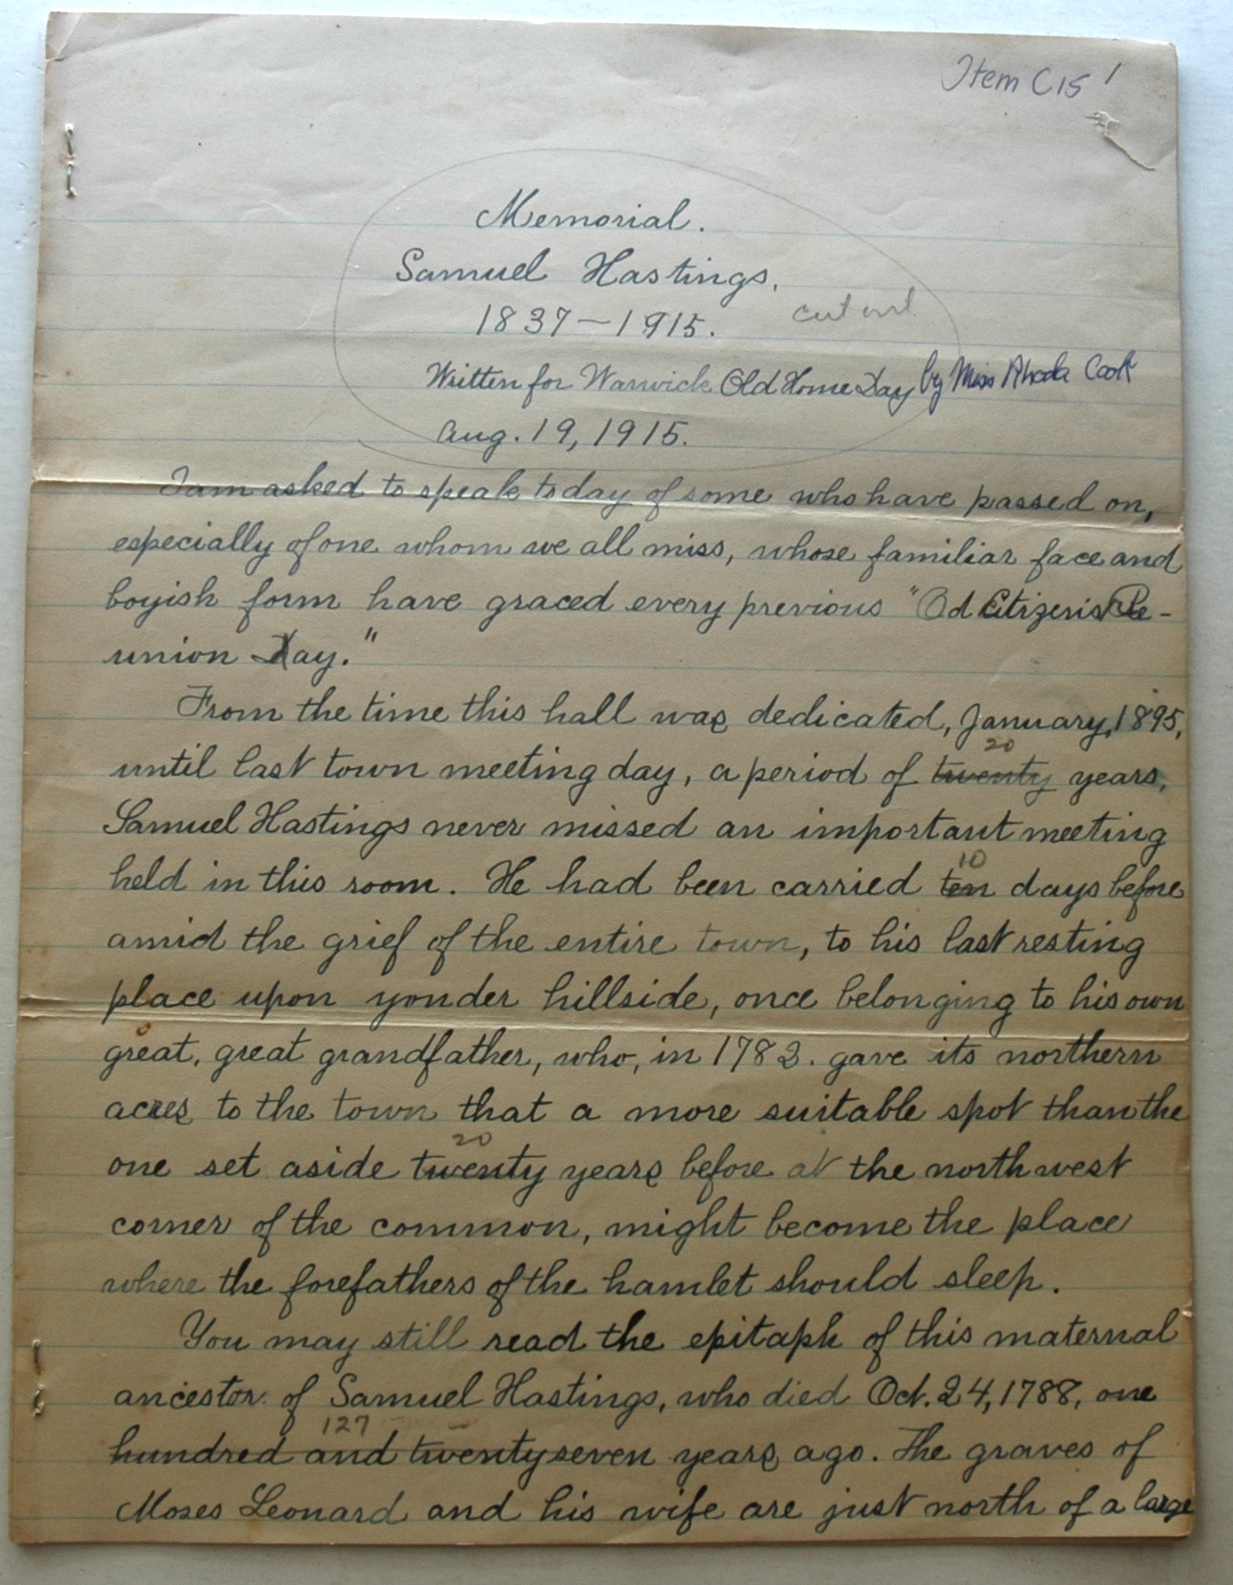 Item C15 1
Memorial.
Samuel Hastings.
1837—1915.
cut out
Written for Warwick Old Home Day by Miss Rhoda Cook
Aug. 19, 1915.
I am asked to speak today of some who have passed on,
especially of one whom we all miss, whose familiar face and
boyish form have graced every previous "Od Citizens Re-
union Day."
From the time this hall was dedicated, January, 1895,
20
until last town meeting day, a period of twenty years,
Samuel Hastings never missed an important meeting
10
held in this room. He had been carried ten days before
amid the grief of the entire town, to his last resting
place upon yonder hillside, once belonging to his own
great, great grandfather, who, in 1782. gave its northern
acres to the town that a more suitable spot than the
20
one set aside twenty years before at the northwest
corner of the common, might become the place
where the forefathers of the hamlet should sleep.
You may still read the epitaph of this maternal
ancestor of Samuel Hastings, who died Oct. 24, 1788, one
127
hundred and twenty seven years ago. The graves of
Moses Leonard and his wife are just north of a large